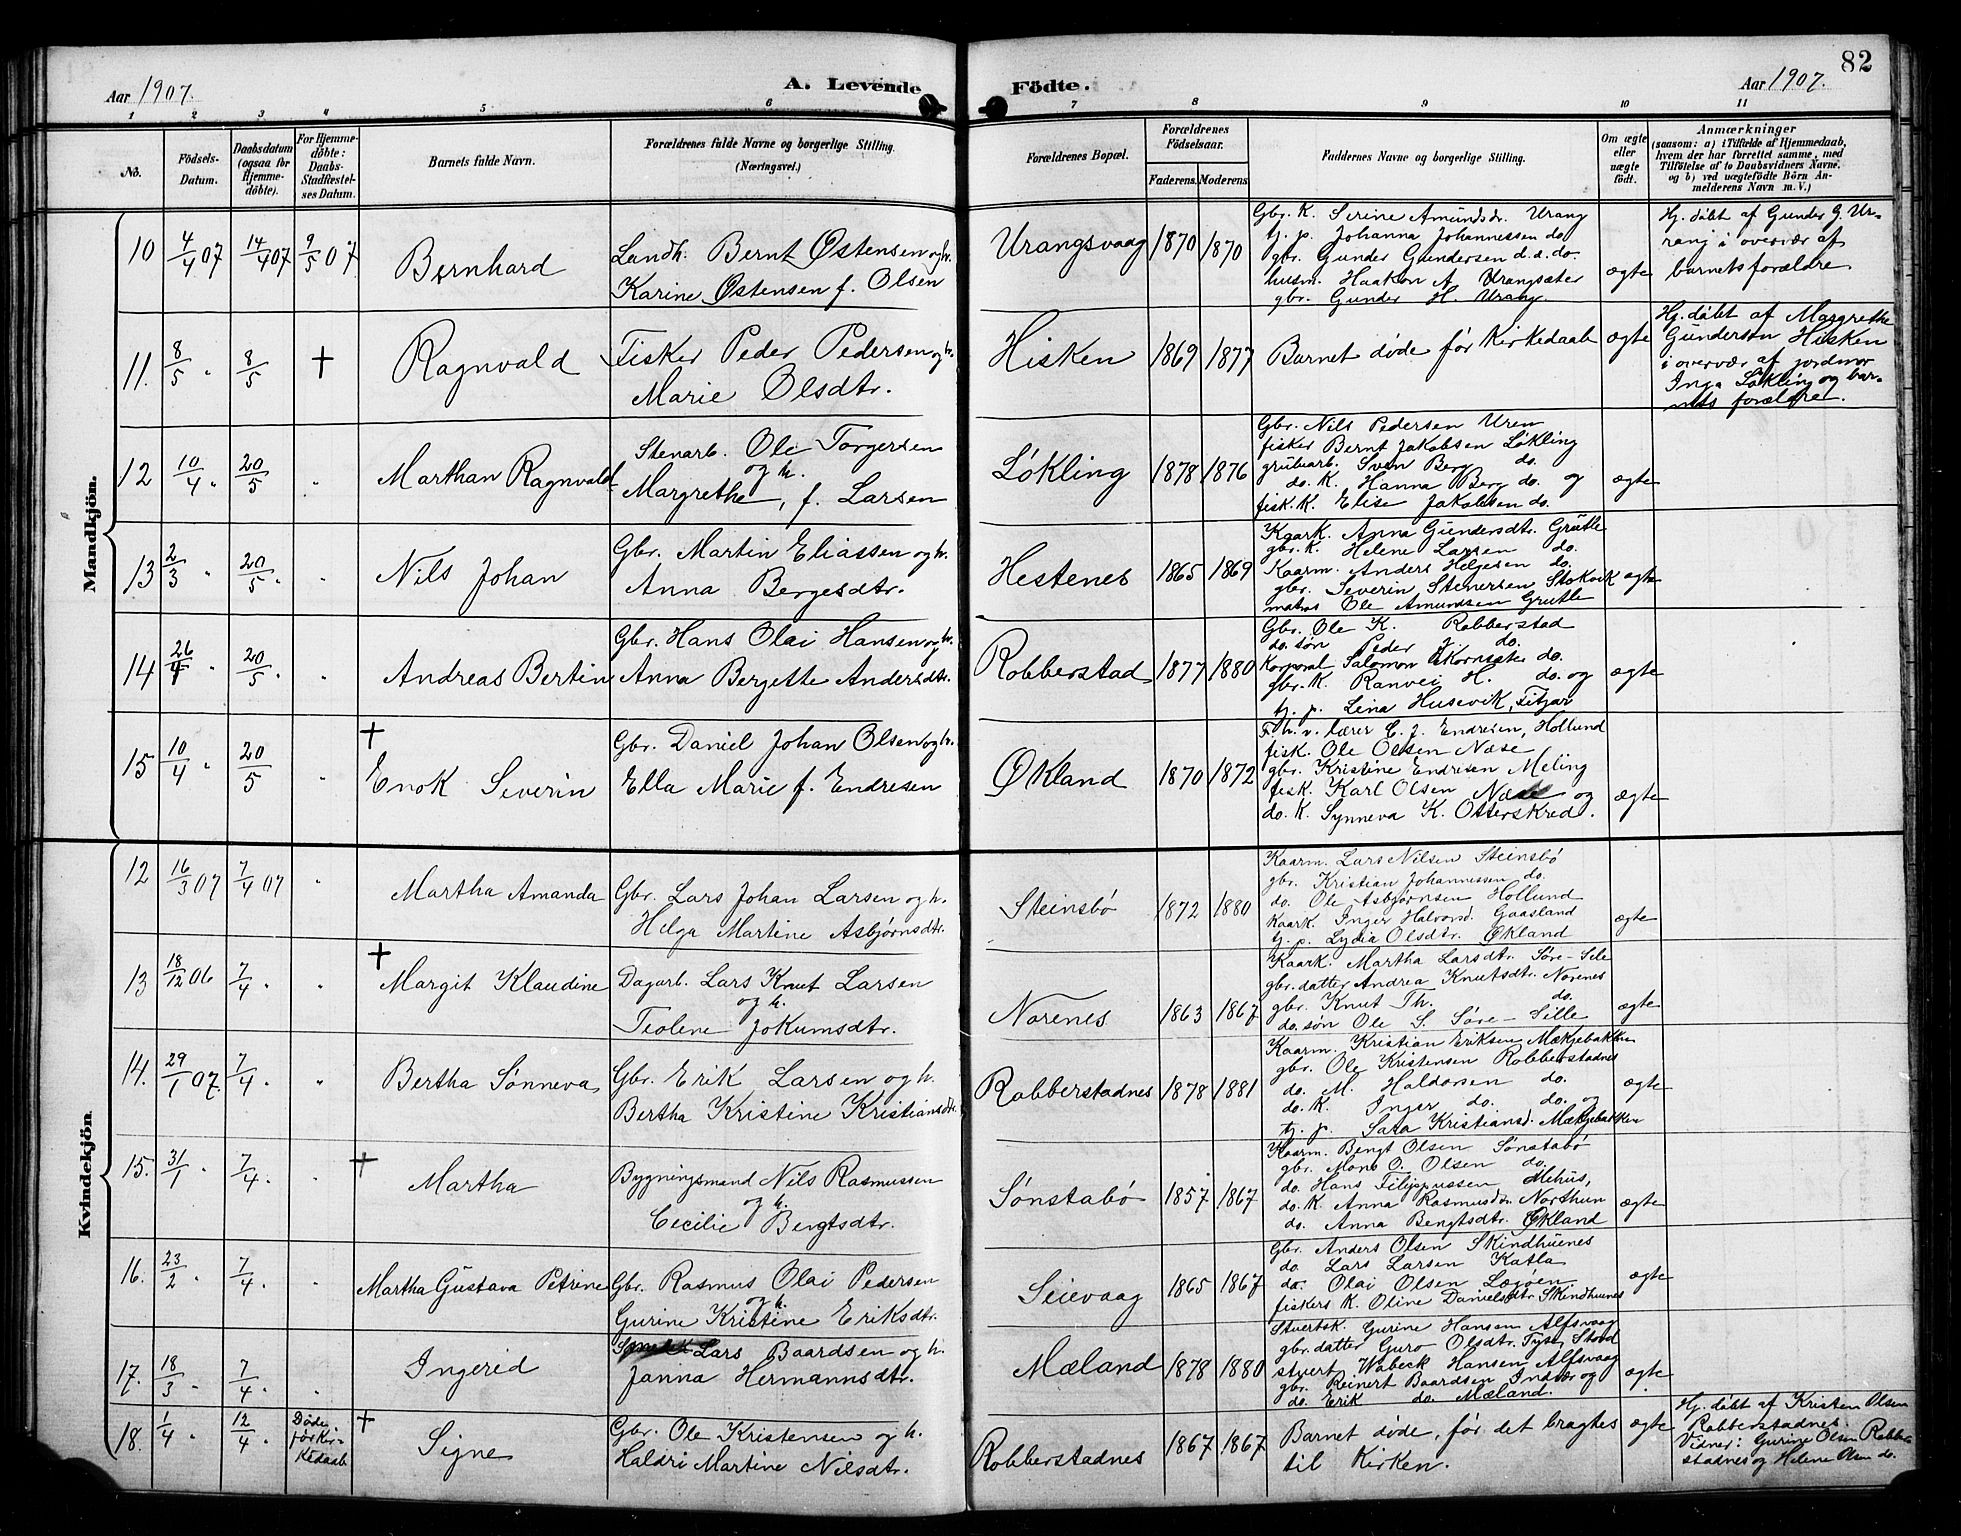 82
Aar 1907.
A. Levende Födte.
Aar 1907.
1 2 3 4 5 6 7 8 9 10 11
No.
Födsels-
Datum.
Daabsdatum
(ogsaa for
Hjemme-
döbte).
For Hjemme-
döbte:
Daabs-
Stadfæstel-
ses Datum.
Barnets fulde Navn.
Forældrenes fulde Navne og borgerlige Stilling.
(Næringsvei.)
Forældrenes Bopæl.
Forældrenes
Födselsaar.
Faderens. Moderens.
Faddernes Navne og borgerlige Stilling.
Om ægte
eller
uægte
födt.
Anmærkninger
(saasom: a) i Tilfælde af Hjemmedaab,
hvem der har forrettet samme, med
Tilföielse af to Daabsvidners Navne,
og b) ved uægtefödte Börn An-
melderens Navn m. V.)
Mandkjön.
10 4/4 07 14/4 07 9/5 07 Bernhard
Landh. Bernt Østensen og h.
Karine Østensen f. Olsen
Urangsvaag 1870 1870
Gbr. K. Serine Amundsdr. Urang
tj. p. Johanna Johannessen do
gbr. Gunder Gundersen d. æ. do.
husm. Haakon A Urangsæter
gbr. Gunder H. Urang
ægte
Hj. døbt af Gunder G. Ur-
rang i overvær af
barnets forældre
11. 8/5 " 8/5 † Ragnvald
Fisker Peder Pedersen og h.
Marie Olsdtr.
Hisken 1869 1877
Barnet døde før Kirkedaab
ægte
Hj. døbt af Margrethe
Gunderson Hisken
i overvær af jordmor
Inga Løkling og bar-
nets forældre.
12 10/4 " 20/5 " Marthan Ragnvald
Stenarb. Ole Torgersen
og h.
Margrethe, f. Larsen
Løkling 1878 1876
Gbr. Nils Pedersen Uren
fisker Bernt Jakobsen Løkling
grubearb. Sven Berg do.
do. K. Hanna Berg do. og
fisk. K. Elise Jakobsen do.
ægte
13 2/3 " 20/5 " Nils Johan
Gbr. Martin Eliassen og h.
Anna Bergesdtr.
Hestenes 1865 1869
Kaark. Anna Gundersdtr. Grutle
gbr. K. Helene Larsen do.
Kaarm. Anders Helgesen do.
gbr. Severin Stenersen Stokvik
matros Ole Amundsen Grutle
ægte
14 26/4 " 20/5 " Andreas Bertin
Gbr. Hans Olai Hansen og h.
Anna Bergette Andersdtr.
Robberstad 1877 1880
Gbr. Ole K. Robberstad
do. søn Peder J. do.
Korporal Salomon Skornsæter do.
gbr. K. Ranvei H. do. og
tj. p. Lina Husevik, Fitjar
ægte
15 10/4 " 20/5 " † Enok Severin
Gbr. Daniel Johan Olsen og h.
Ella Marie f. Endresen
Økland 1870 1872
F. h. v. lærer E. J. Endresen, Hollund
fisk. Ole Olsen Næse
gbr. Kristine Endresen Meling
fisk. Karl Olsen Næse og
do. K. Synneva K. Otterskred.
ægte
Kvindekjön.
12 16/3 07 7/4 07 " Martha Amanda
Gbr. Lars Johan Larsen og h.
Helga Martine Asbjørnsdtr.
Steinsbø 1872 1880
Kaarm. Lars Nilsen Steinsbø
gbr. Kristian Johannessen do.
do. Ole Asbjørnsen Hollund
Kaark. Inger Halvorsd. Gaasland
tj. p. Lydia Olsdtr. Økland
ægte
13 18/12 06 7/4 " † Margit Klaudine
Dagarb. Lars Knut Larsen
og h.
Teolene Jokumsdtr.
Norenes 1863 1867
Kaark. Martha Larsdtr. Søre-Sele
gbr. datter Andrea Knutsdtr. Norenes
gbr. Knut Th. do.
do. søn Ole S. Søre-Sille
ægte
14. 29/1 07. 7/4 " Bertha Sønneva
Gbr. Erik Larsen og h.
Bertha Kristine Kristiansdtr.
Robberstadnes 1878 1881
Kaarm. Kristian Eriksen Mækjebakken
gbr. Ole Kristensen Robberstadnes
do. M. Haldorsen do.
do. K. Inger do. do. og
tj. p. Sara Kristiansd. Mækjebakken
ægte
15. 31/1 " 7/4 " † Martha
Bygningsmand Nils Rasmussen
og h.
Cecilie Bengtsdtr.
Sønstabø 1857 1867
Kaarm. Bengt Olsen Sønstabø
gbr. Mons O. Olsen do.
do. Hans Filippussen Mehus,
do. K. Anna Rasmusdtr. Northun
do. Anna Bengtsdtr. Økland
ægte
16. 23/2 " 7/4 " Martha Gustava Petrine
Gbr. Rasmus Olai Pedersen
og h.
Gurine Kristine Eriksdtr.
Seievaag 1865 1867
Gbr. Anders Olsen Skindhuenes
do. Lars Larsen Katla
do. Olai Olsen Løgøen
fiskers K. Oline Danielsdtr. Skindhuenes
ægte
17. 18/3 " 7/4 " Ingerid
Lars Baardsen og h.
Janna Hermannsdtr.
Mæland 1878 1880
Stvertsk. Gurine Hansen Alfsvaag
gbr. datter Guro Olsdtr. Tyse, Stord
stvert Wabeck Hansen Alfsvaag
gbr. Reinert Baardsen Indvær og
do. Erik do. Mæland.
ægte
18. 1/4 " 12/4 " Døde
før Kir-
kedaab
† Signe
Gbr. Ole Kristensen og h.
Haldri Martine Nilsdtr.
Robberstadnes 1867 1867
Barnet døde, før det bragtes
til Kirken.
ægte
Hj. døbt af Kristen Olsen
Robberstadnes.
Vidner: Gurine Olsen Robber-
stadnes og Helene Olsen do.